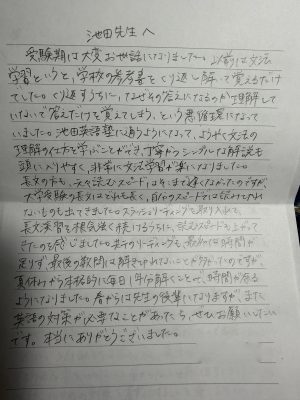 池田先生へ
受験期は大変お世話になりました。以前は文法
学習というと、学校の参考書をくり返し解いて覚えるだけ
でした。くり返すうちに、なぜその答えになるのか理解して
いないで答えだけを覚えてしまう、という悪循環になって
いました。池田英語塾に通うようになって、ようやく文法の
理解の仕方を学ぶことができ、丁寧かつシンプルな解説も
頭に入りやすく、非常に文法学習が楽になりました。
長文の方も、元々読むスピードはそこまで遅くなかったのですが、
大学受験の長文はどれも長く、自分のスピードでは読みきれ
ないものも出てきました。スラッシュリーディングを取り入れて、
長文演習を根気強く続けるうちに、読むスピードも上がって
きたのを感じました。共テのリーディングも、最初は時間が
足りず、最後の数問は解ききれないことが多かったのですが、
夏休みから本格的に毎日1年分解くことで、時間が余る
ようになりました。春からは先生の後輩になりますが、また
英語の対策が必要なことがあったら、ぜひお願いしたい
です。本当にありがとうございました。